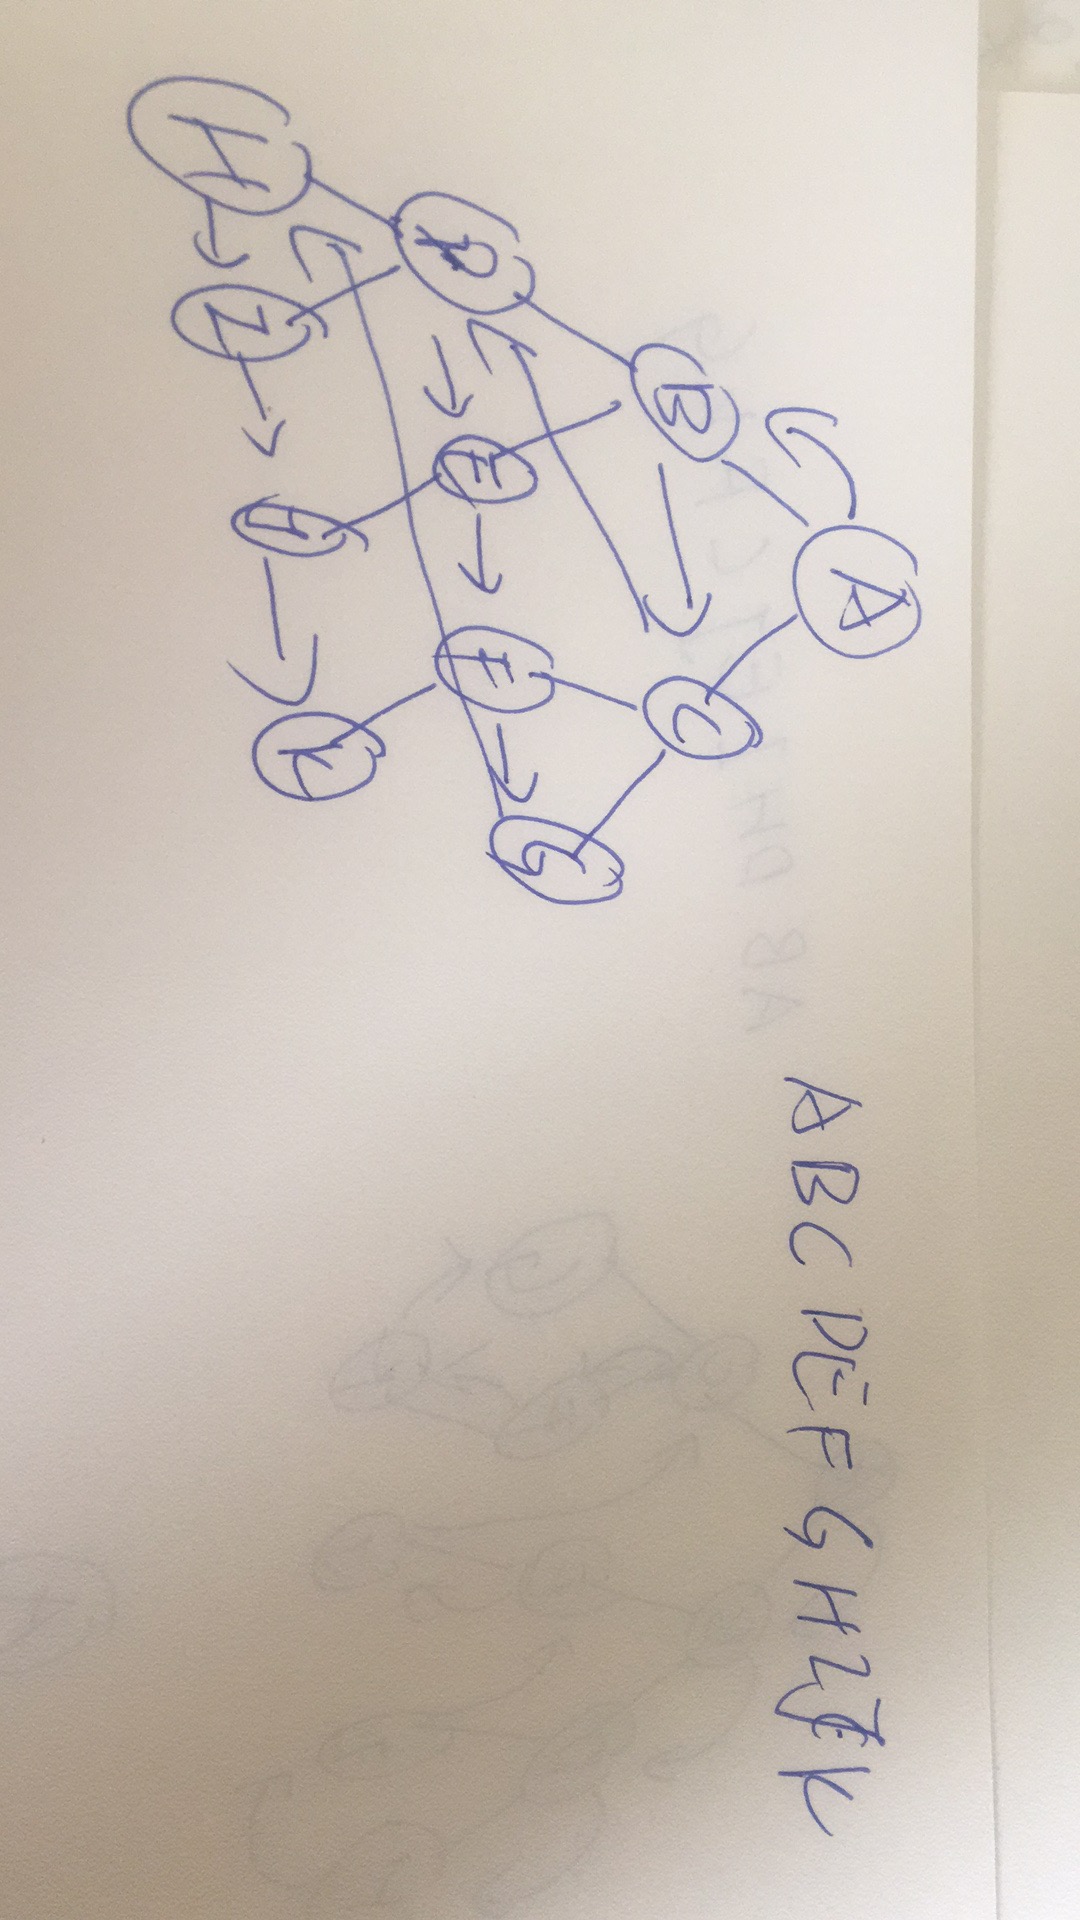 A
B C
D E F G
H Z K
A B C D E F G H Z K